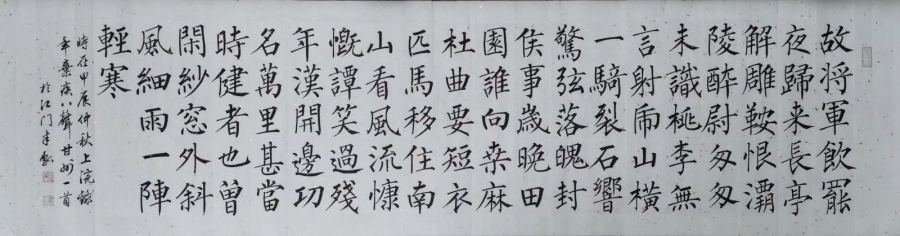 故将軍飲罷
夜歸来長亭
解雕鞍恨灞
陵醉尉匆匆
未識桃李無
言射虎山橫
一騎裂石響
驚弦落魄封
侯事歲晚田
園誰向桒麻
杜曲要短衣
匹馬移住南
山看風流慷
慨譚笑過殘
年漢開邊功
名萬里甚當
時健者也曽
閑紗窓外斜
風細雨一陣
輕寒
時在甲辰仲秋上浣錄
辛棄疾八聲甘州一首
於江门